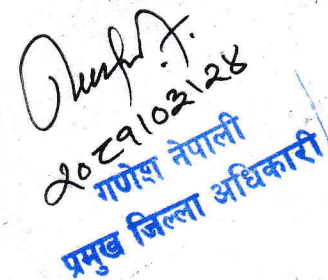 २०८१।०३।२४
गणेश नेपाली
प्रमुख जिल्ला अधिकारी